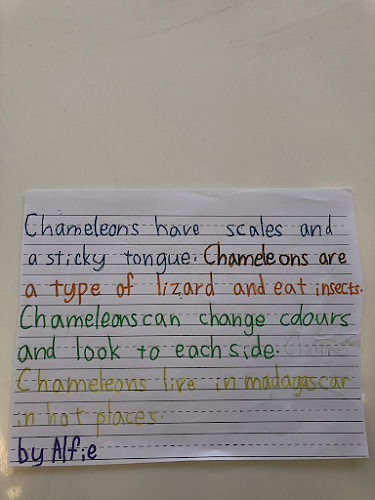 Chameleons have scales and
a sticky tongue. Chameleons are
a type of lizard and eat insects.
Chameleons can change colours
and look to each side.
Chameleons live in madagascar
in hot places.
by Alfie